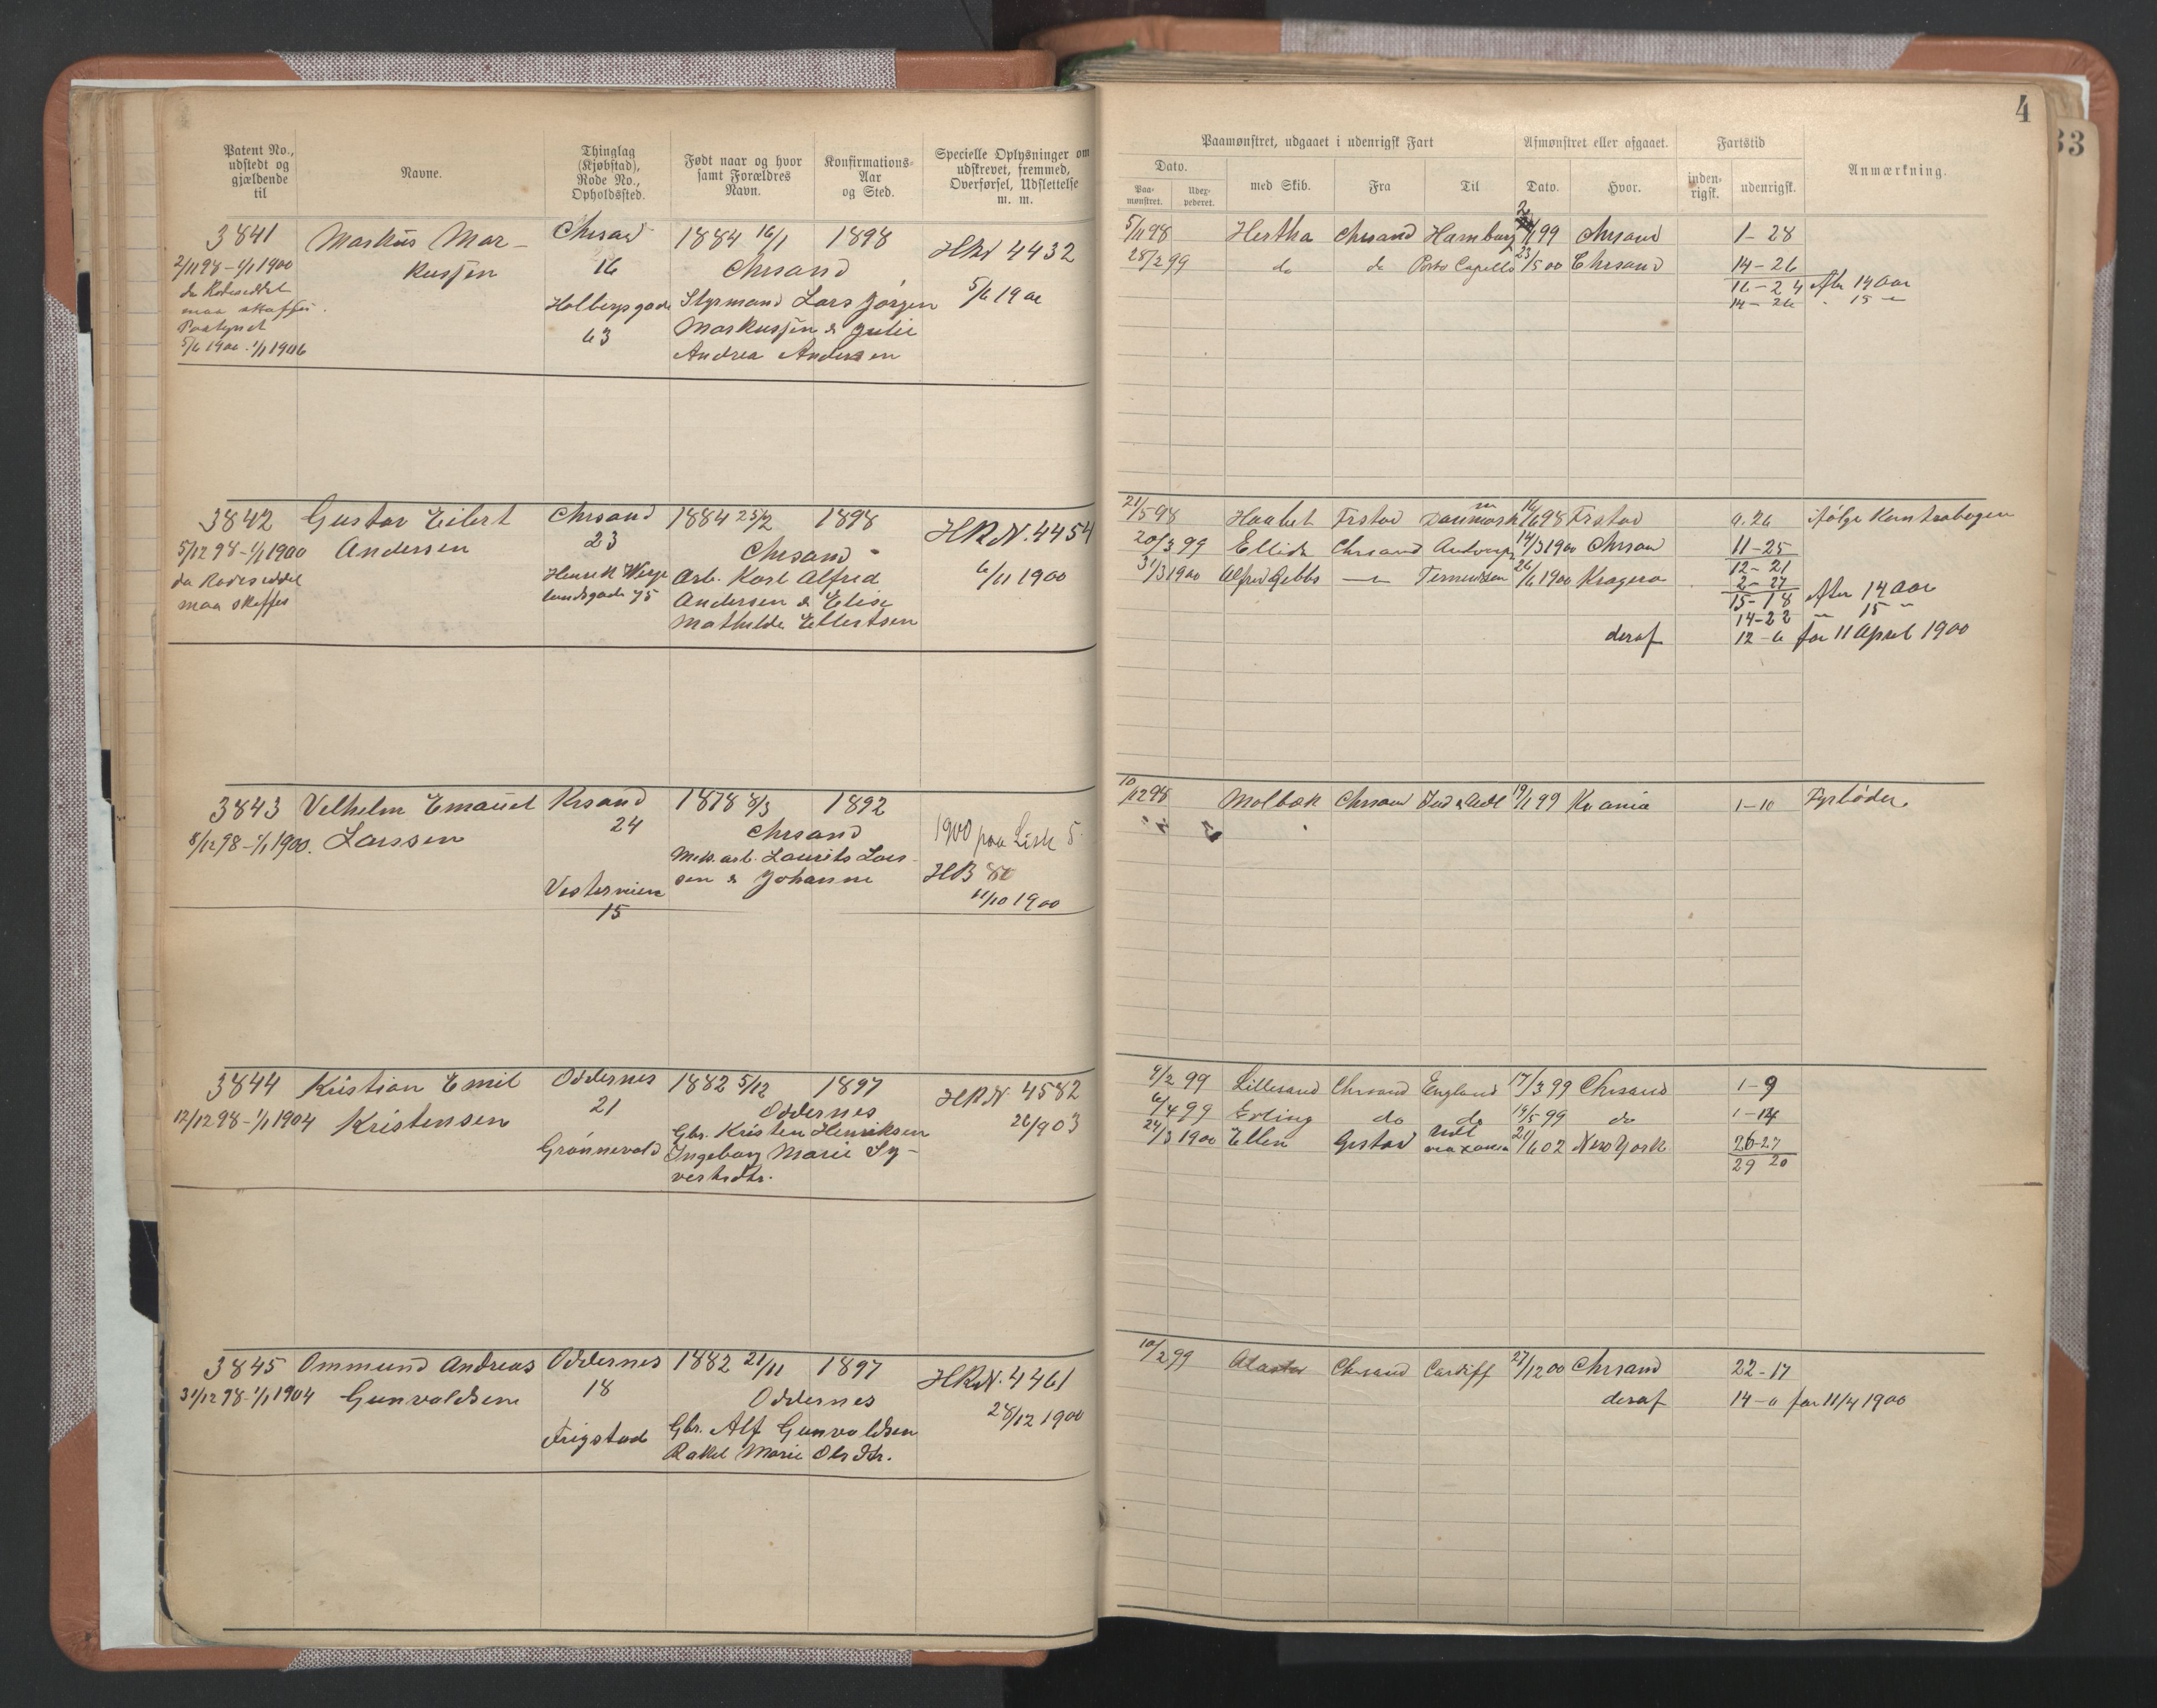 4
33
Patent No., udstedt og gjældende til
Navne.
Thinglag (Kjøbstad), Rode No., Opholdssted.
Født naar og hvor samt Forældres Navn.
Konfirmations-Aar og Sted.
Specielle Oplysninger om udskrevet, fremmed, Overførsel, Udslettelse m. m.
Paamønstret, udgaaet i udenrigsk Fart
Dato.
Paa-mønstret.
Udex-pederet.
med Skib.
Fra
Til
Afmønstret eller afgaaet.
Dato.
Hvor.
Fartstid
inden-rigsk.
udenrigsk.
Anmærkning.
3841
2/11 98 - 1/1 1900
da Rodeseddel
maa skaffes.
5/6 1900. 1/1 1906
Markus Mar-
kussen
Chrsand
16
Holbergsgade
63
1884 16/1 1898
Chrsand
Styrmand Lars Jørgen
Markussen & Julie
Andrea Andersen
HRN 4432
5/6 1900
5/11 98 Hertha Chrsand Hamburg 1/99 Chrsand 1-28
28/2 99 do do Porto Capello 23/5 00 Chrsand 14-26
16-24 efter 14 Aar
14-26 " 15 -
3842
5/12 98 - 1/1 1900
da Rodeseddel
maa skaffes
Gustav Eilert
Andersen
Chrsand
23
Henrik Werge
landsgade 75
1884 25/2 1898
Chrsand
Arb. Karl Alfred
Andersen & Elise
Mathilde Ellertsen
HRN. 4454
6/11 1900
21/5 98 Haabet Frstad Danmark 16/6 98 Frstad 0.26 ifølge Kontrabogen
20/3 99 Ellida Chrsand Antwerp 14/3 1900 Chrsan 11-25
12-21
31/3 1900 Alfred Gibbs -"- 26/6 1900 Kragerø 2-27
15-18 efter 14 Aar
14-22 " 15 "
deraf 12-6 før 11 April 1900
3843
8/12 98 - 1/1 1900.
Vilhelm Emanuel
Larssen
Krsand
24
Vesterveien
15
1878 8/3 1892
Chrsand
Mek. arb. Laurits Lars-
sen & Johanne
1900 paa Liste 5
HB 80
11/10 1900
10/12 98 Molbæk Chrsan 19/1 99 Krania 1-10 Fyrbøder
3844
12/12 98 - 1/1 1904
Kristian Emil
Kristensen
Oddernes
21
Grønnevold
1882 5/12 1897
Oddernes
Gbr. Kristen Henriksen
Ingeborg Marie Sy-
vertsdtr.
HRN. 4582
26/903
4/2 99 Lillesand Chrsand England 17/3 99 Chrsand 1-9
6/4 99 Erling do do 19/5 99 do 1-14
24/3 1900 Ellen Grstad 21/6 02 New York 26-27
29 20
3845
31/12 98 - 1/1 1904
Ommund Andreas
Gunvaldsen
Oddernes
18
Frigstad
1882 21/11 1897
Oddernes
Gbr. Alf Gunvaldsen
Rakel Marie Olsdtr.
HRN. 4461
28/12 1900
10/2 99 Chrsand Cardiff 27/12 00 Chrsand 22-17
deraf 14-0 før 11/4 1900